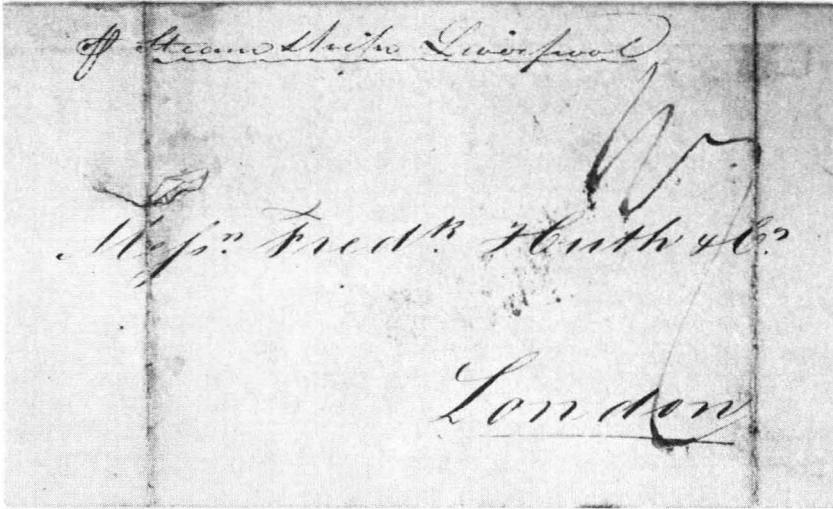 ⅌ Steam Ship Liverpool
Messrs Fredk Huth & Co
London